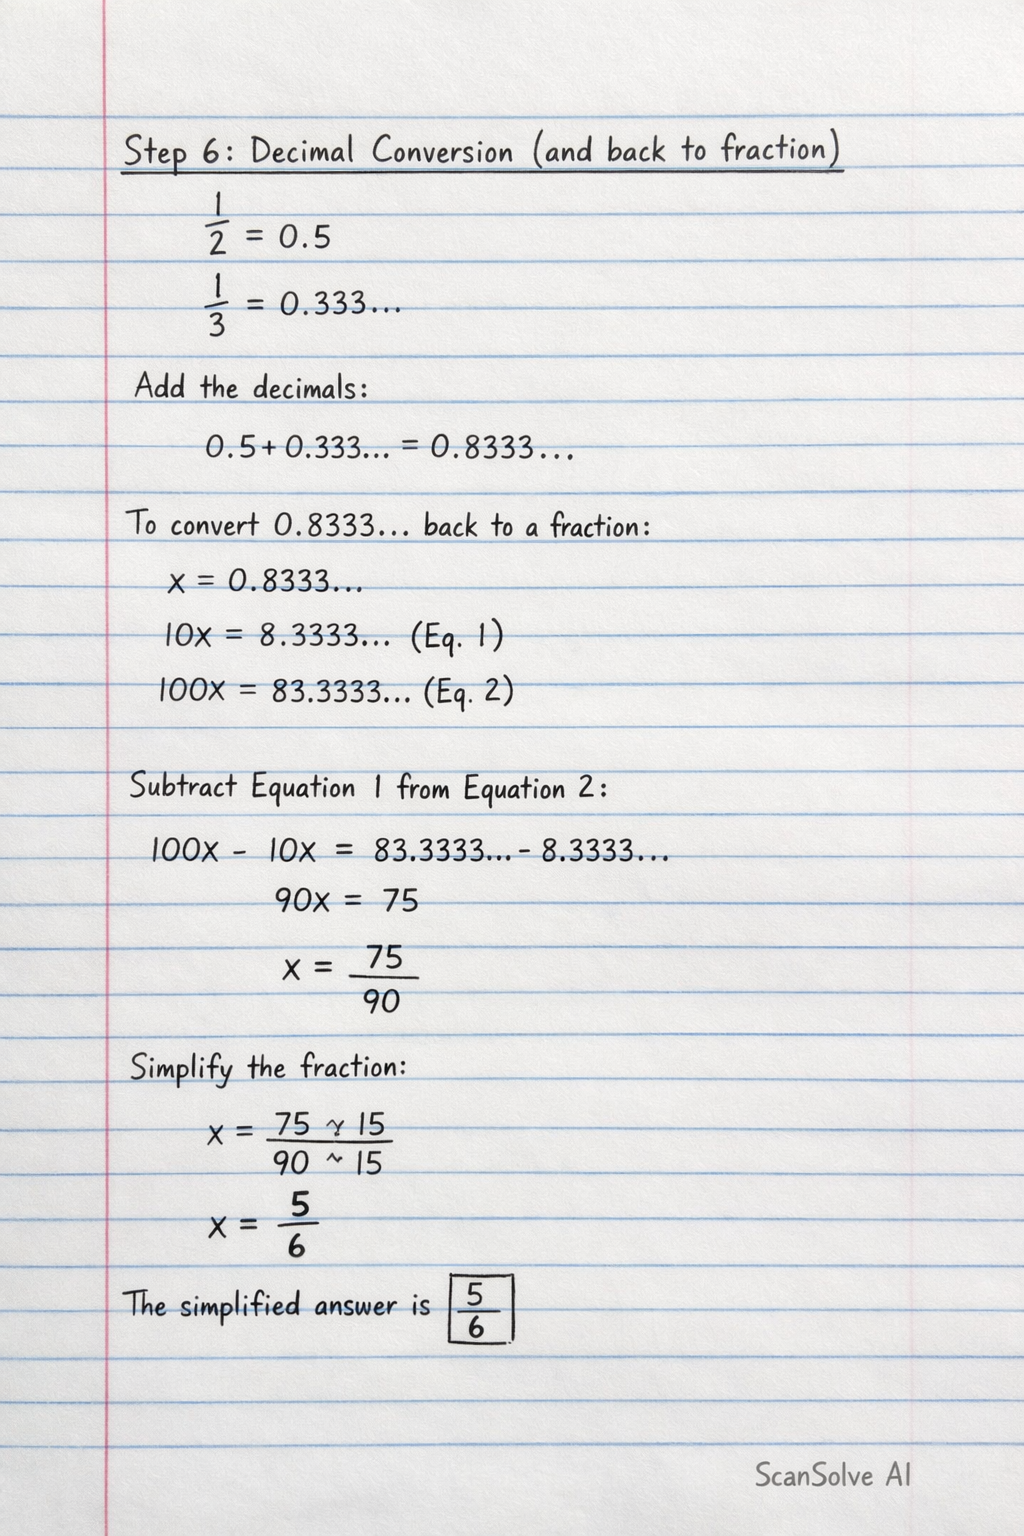 Step 6: Decimal Conversion (and back to fraction)
1/2 = 0.5
1/3 = 0.333...
Add the decimals:
0.5 + 0.333... = 0.8333...
To convert 0.8333... back to a fraction:
x = 0.8333...
10x = 8.3333... (Eq. 1)
100x = 83.3333... (Eq. 2)
Subtract Equation 1 from Equation 2:
100x - 10x = 83.3333... - 8.3333...
90x = 75
x = 75/90
Simplify the fraction:
x = 75 15 / 90 ~ 15
x = 5/6
The simplified answer is 5/6
ScanSolve AI